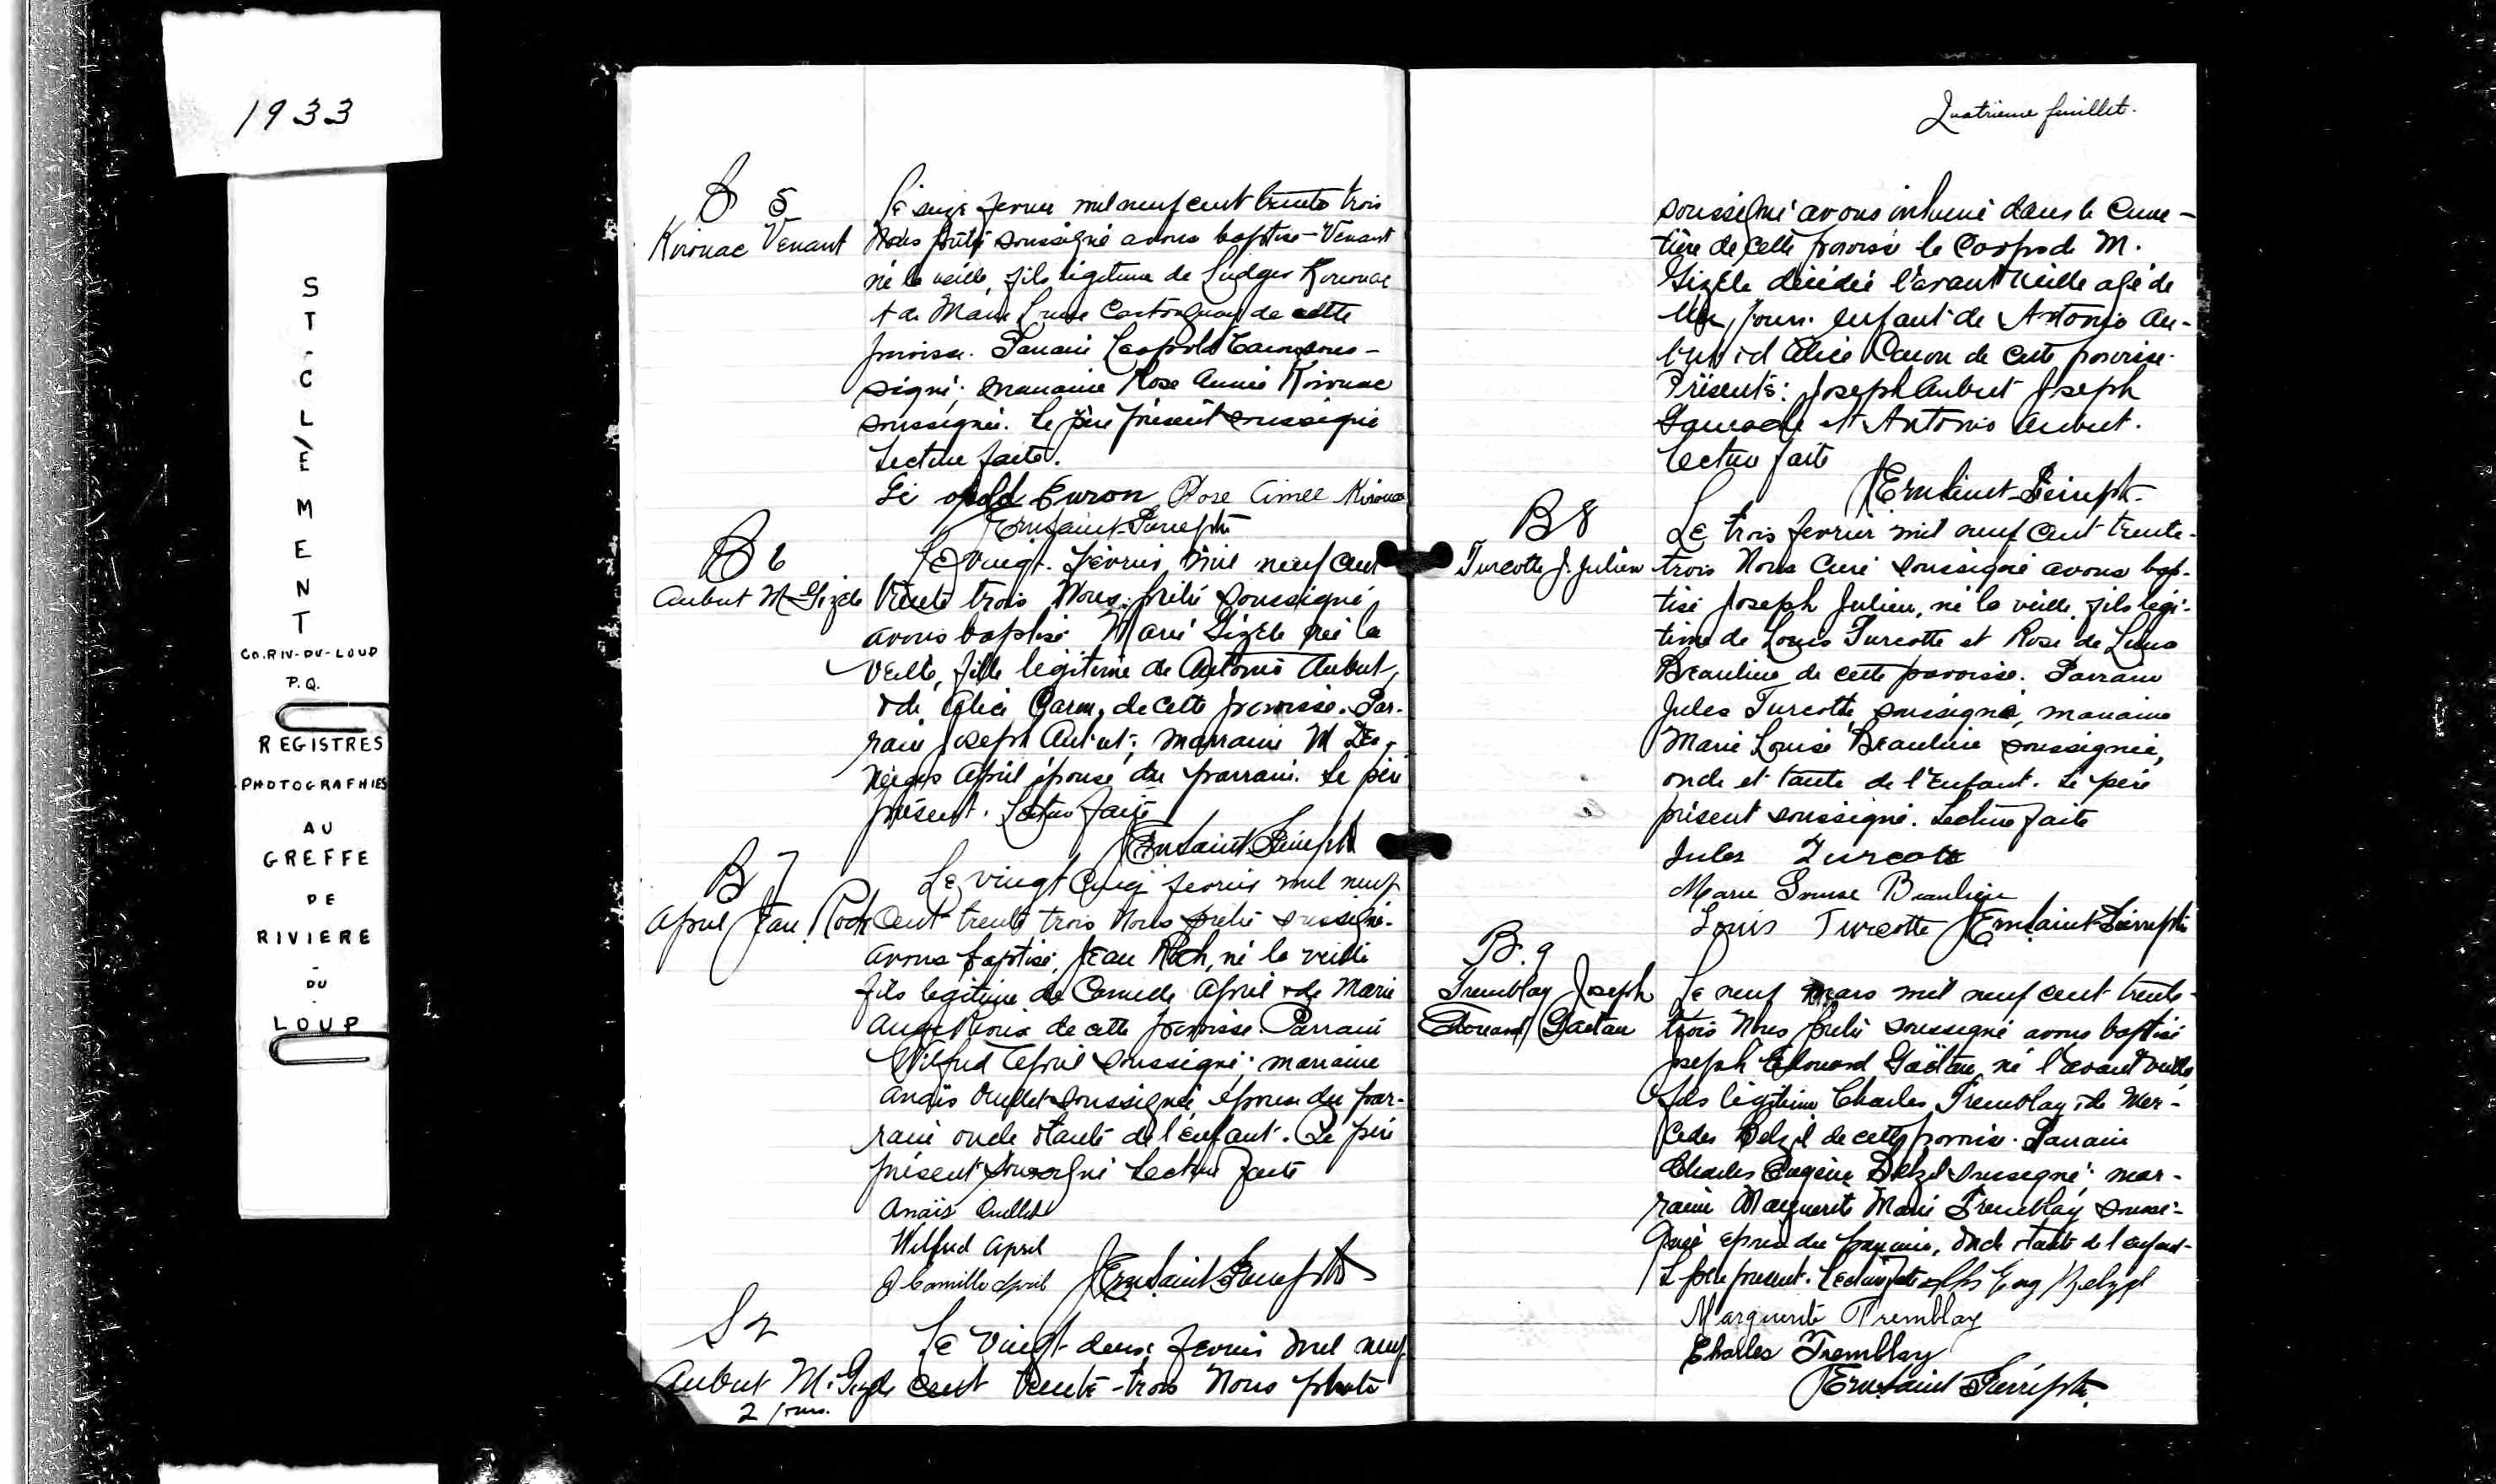 1933
ST-CLÉMENT
CO. RIV-DU-LOUP
P.Q.
REGISTRES
PHOTOGRAPHIES
AU
GREFFE
DE
RIVIERE
-
DU
-
LOUP
B 5
Kirouac Venant
Le seize fevrier mil neuf cent trente trois
Nous prêtre soussigné avons baptisé Venant
né la veille, fils légitime de Ludger Kirouac
& de Marie Louise Castonguay de cette
paroisse. Parrain Leopold Caron sous-
signé; marraine Rose Aimée Kirouac
soussignée. Le père présent soussigné
Lecture faite.
Léopold Caron Rose Aimée Kirouac
B 6
Aubut M Gizèle
Le vingt février mil neuf cent
trente trois Nous prêtre soussigné
avons baptisé Marie Gizèle née la
veille, fille légitime de Antonio Aubut,
& de Alice Caron, de cette paroisse. Par-
rain Joseph Aubut; marraine M Des-
Neiges April épouse du parrain. Le père
présent. Lecture faite
B 7
April Jean Roch
Le vingt cinq fevrier mil neuf
cent trente trois Nous prêtre soussigné
avons baptisé, Jean Roch, né la veille
fils legitime de Camille April & de Marie
Ange Rioux de cette paroisse. Parrain
Wilfrid April soussigné; marraine
Anaïs Ouellet soussignée, épouse du par-
rain oncle & tante de l'enfant. Le père
présent soussigné Lecture faite
Anaïs Ouellet
Wilfrid April
J Camille April
S 2
Aubut M. Gizèle
2 jours.
Le vingt deux fevrier mil neuf
cent trente-trois Nous prêtre
Quatrième feuillet.
soussigné avons inhumé dans le Cime-
tière de cette paroisse le Corps de M.
Gizèle décédée l'avant veille agé de
jours. enfant de Antonio Au-
but et d'Alice Caron de cette paroisse.
Présents: Joseph Aubut Joseph
et Antonio Aubut.
Lecture faite
B 8
Turcotte J. Julien
Le trois fevrier mil neuf cent trente-
trois Nous Curé soussigné avons bap-
tisé Joseph Julien, né la veille, fils légi-
time de Louis Turcotte et Rose de Lima
Beaulieu de cette paroisse. Parrain
Jules Turcotte soussigné, marraine
Marie Louise Beaulieu soussignée,
oncle et tante de l'Enfant. Le père
présent soussigné. Lecture faite
Jules Turcotte
Marie Louise Beaulieu
Louis Turcotte
B. 9
Tremblay Joseph
Edouard Gaetan
Le neuf mars mil neuf cent trente-
trois Nous prêtre soussigné avons baptisé
Joseph Edouard Gaëtan, né l'avant veille,
fils légitime Charles Tremblay & de Mer-
cedes Belzil de cette paroisse. Parrain
Charles Eugène Belzil soussigné; mar-
raine Marguerite Marie Tremblay soussi-
gnée épouse du parrain, oncle & tante de l'enfant-
L père present. Lecture faite Chs Eug Belzil
Marguerite Tremblay
Charles Tremblay